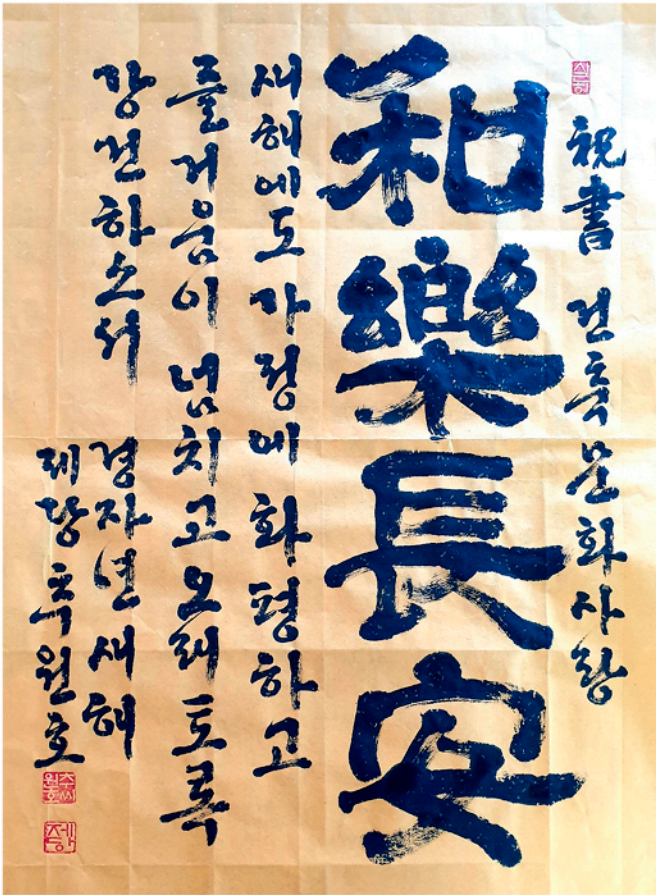 祝書 건축문화사랑
和樂長安
새해에도 가정에 화평하고
즐거움이 넘치고 오래토록
강건하소서
경자년 새해
제당 추원호
추씨원호
제당